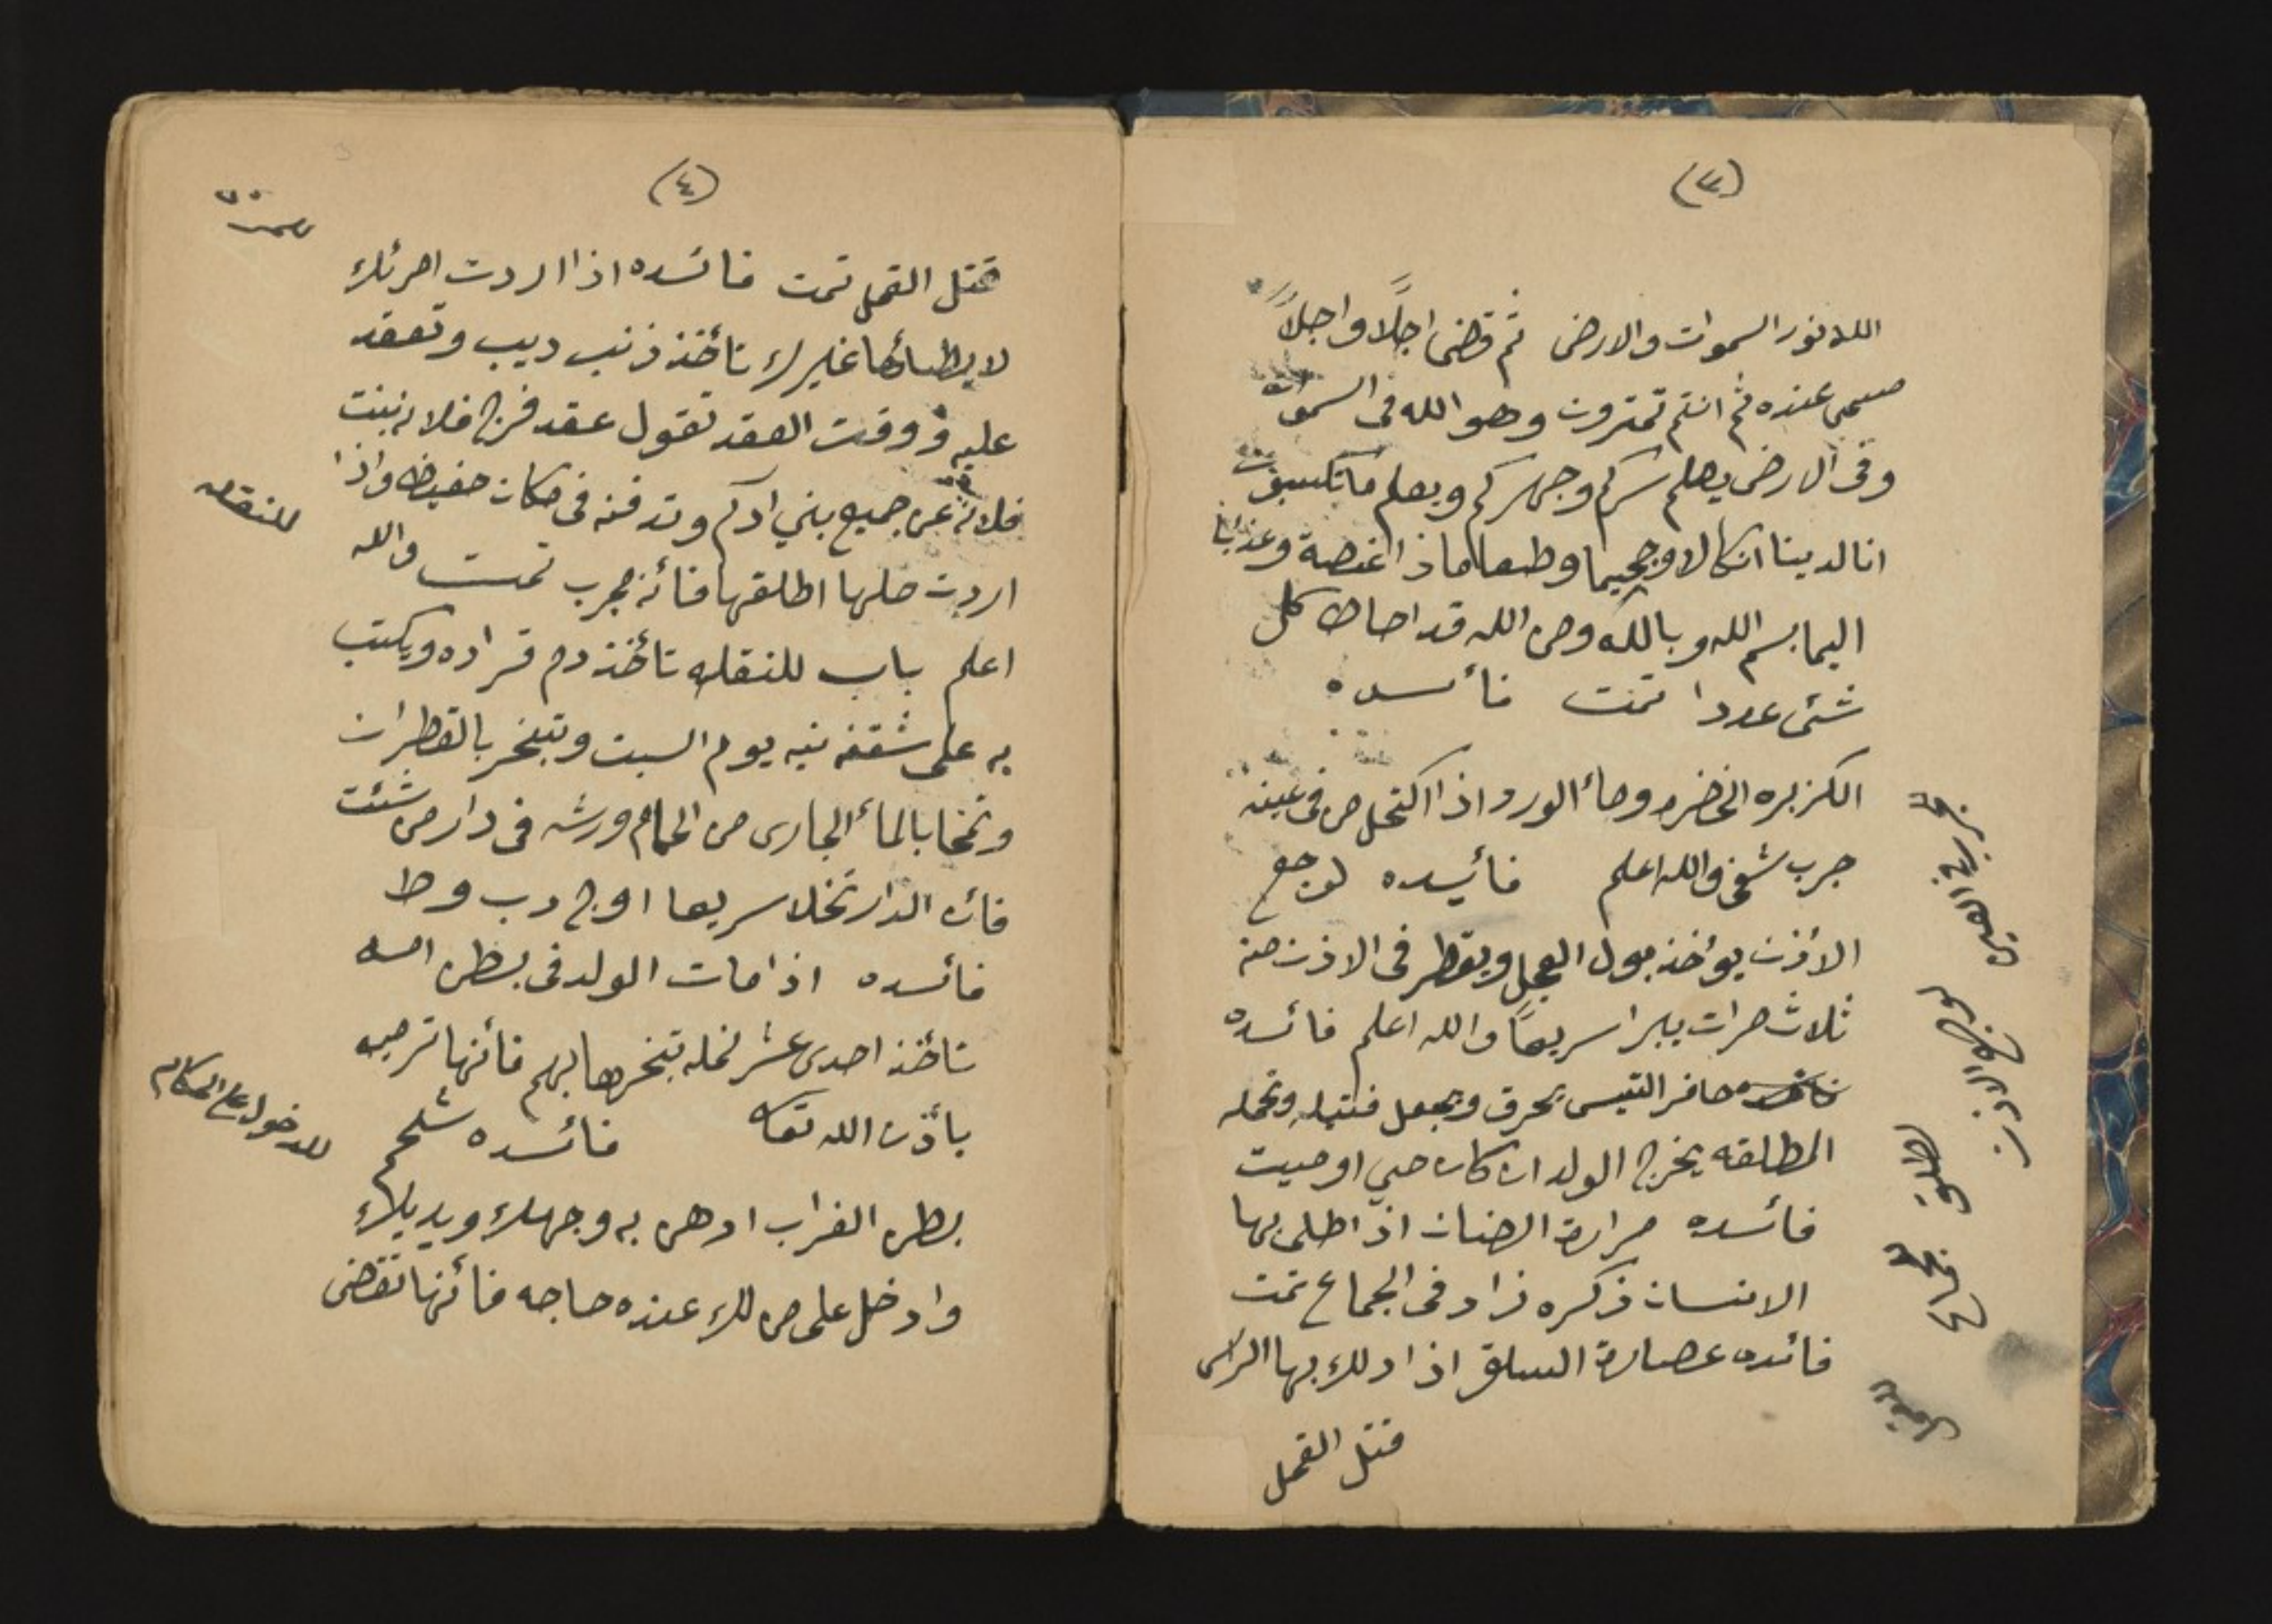 (٣)
اللا نور السموات والارض ثم قضى اجلاً واجلاً
مسمى عنده ثم انتم تمترون وهو الله فى السموات
وفى الارض يعلم سركم وجهركم ويعلم ماتكسبون
انا لدينا انكالا وجحيما وطعاما ذا غصة وعذابا
اليما بسم الله وبالله ومن الله قد احاط كل
شئى عددا تمت فأسده
الكزبره الخضره ومأ الورد اذا اكتحل من فى عينه
جرب شفى والله اعلم فأيسده لوجع
الأذن يؤخذ بول العجل ويقطر فى الاذن منه
ثلاث مرات يبرا سريعاً والله اعلم فائسده
حافر التيس يحرق ويجعل فتيله وتحمله
المطلقه يخرج الولد ان كان حي او ميت
فائسده مرارة الضان اذا طلى بها
الانسان ذكره زاد فى الجماع تمت
فائده عصارة السلق اذا دلك بها الراس
قتل القمل
لوجع الاذن
لطلق
(٤)
قتل القمل تمت فائسده اذا اردت امرئك
لا يطأها غيرك تأخذ ذنب ديب وتعقد
عليه ووقت العقد تقول عقد فرج فلانه بنت
فلانه عن جميع بني ادم وتدفنه فى مكان حفيظ واذا
اردت حلها اطلقها فأنه مجرب تمت والله
اعلم باب للنقله تأخذ دم قراده ويكتب
به على شقفه نيه يوم السبت وتبخر بالقطران
وتمحا بالمأ الجارى من الحمام ورشه فى دار من شئت
فائن الدار تخلا سريعا اوج دب وط
فائسده اذا مات الولد فى بطن امه
تاخذ احدى عشر نمله تبخرها بهم فأنها ترميه
بأذن الله تعا فائسده شحم
بطن الغراب ادهن به وجهك ويديك
وادخل على من لك عنده حاجه فأنها تقضى
للنقله
للدخول على الحكام